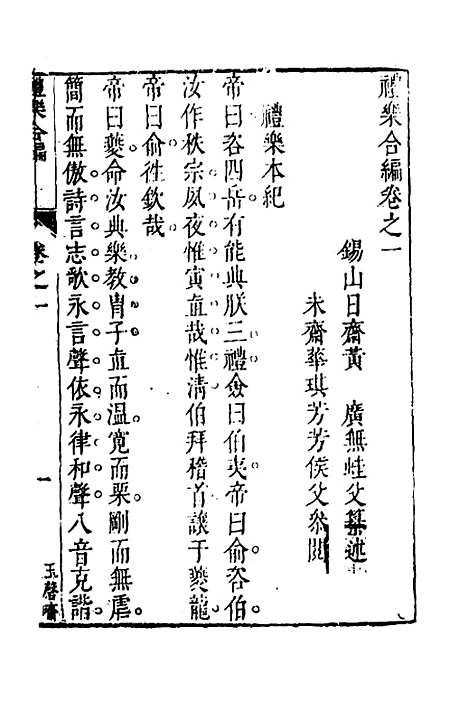 禮樂合編卷之一
錫山日齋黃 廣無蛙父纂述
未齋華琪芳芳侯父叅閱
禮樂本紀
帝曰咨四岳有能典朕三禮僉曰伯夷帝曰俞咨伯
汝作秩宗夙夜惟寅直哉惟淸伯拜稽首讓于夔龍
帝曰俞徃欽哉
帝曰夔命汝典樂教胄子直而溫寬而栗剛而無虐
簡而無傲詩言志歌永言聲依永律和聲八音克諧
禮樂合編
卷之一
一
玉磬齋